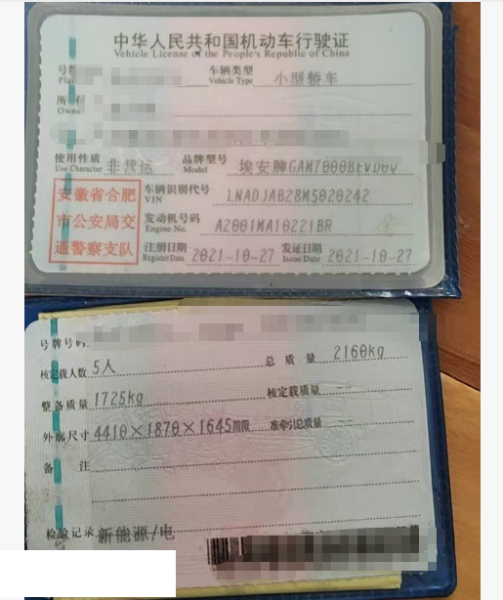 中华人民共和国机动车行驶证
Vehicle License of the People's Republic of China
车辆类型 小型轿车
Vehicle Type
使用性质 非营运 品牌型号 埃安牌GAM7000BEVD0Q
Use Character Model
安徽省合肥市公安局交通警察支队
车辆识别代号 LNADJAB28M5020242
VIN
发动机号码 A2001MA10221BR
Engine No.
注册日期 2021-10-27 发证日期 2021-10-27
Register Date Issue Date
号牌号码
核定载人数 5人 总质量 2160kg
整备质量 1725kg 核定载质量 --
外廓尺寸 4410×1870×1645mm 准牵引总质量 --
备注
检验记录 新能源/电